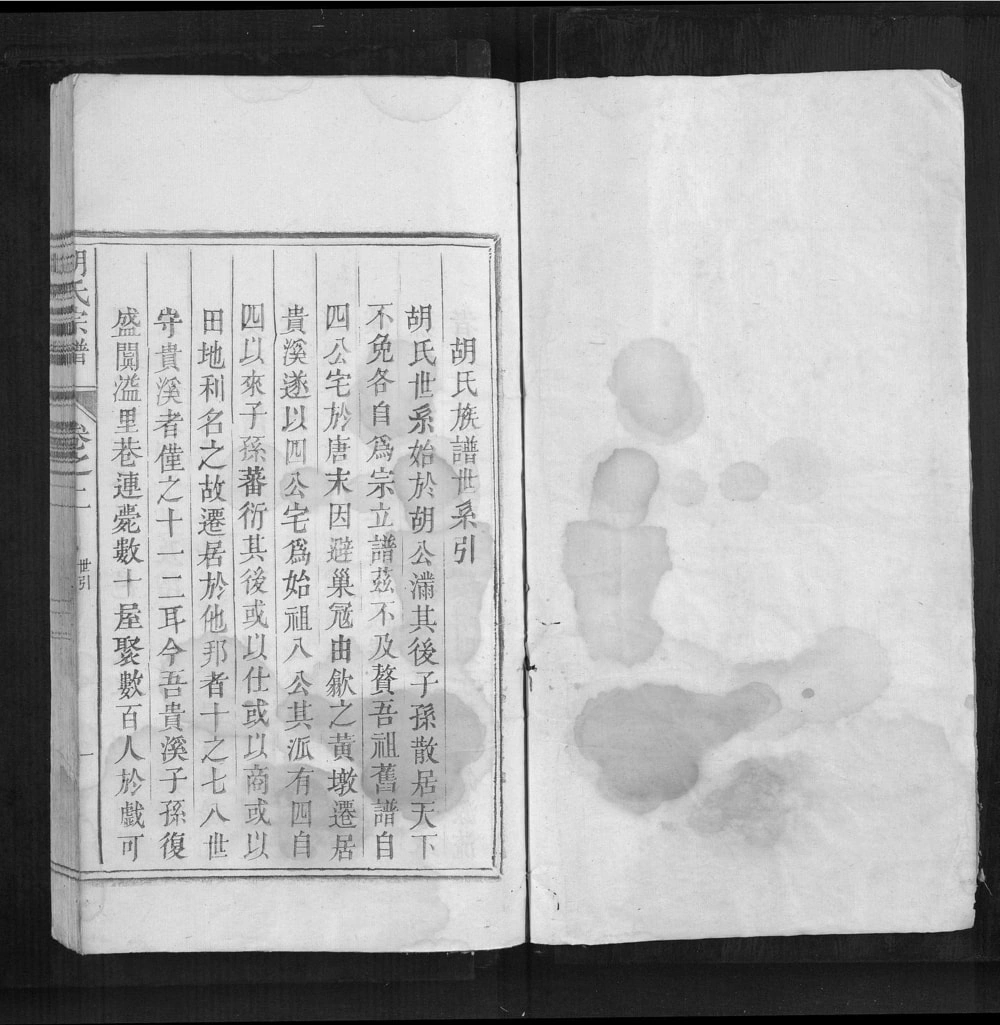 胡氏族譜世系引
胡氏世系始於胡公滿其後子孫散居天下
不免各自爲宗立譜茲不及贅吾祖舊譜自
四公宅於唐末因避巢冦由歙之黃墩遷居
貴溪遂以四公宅爲始祖八公其派有四自
四以來子孫蕃衍其後或以仕或以商或以
田地利名之故遷居於他邦者十之七八世
守貴溪者僅之十一二耳今吾貴溪子孫復
盛闐溢里巷連甍數十屋聚數百人於戲可
胡氏宗譜
卷之一
世引
一